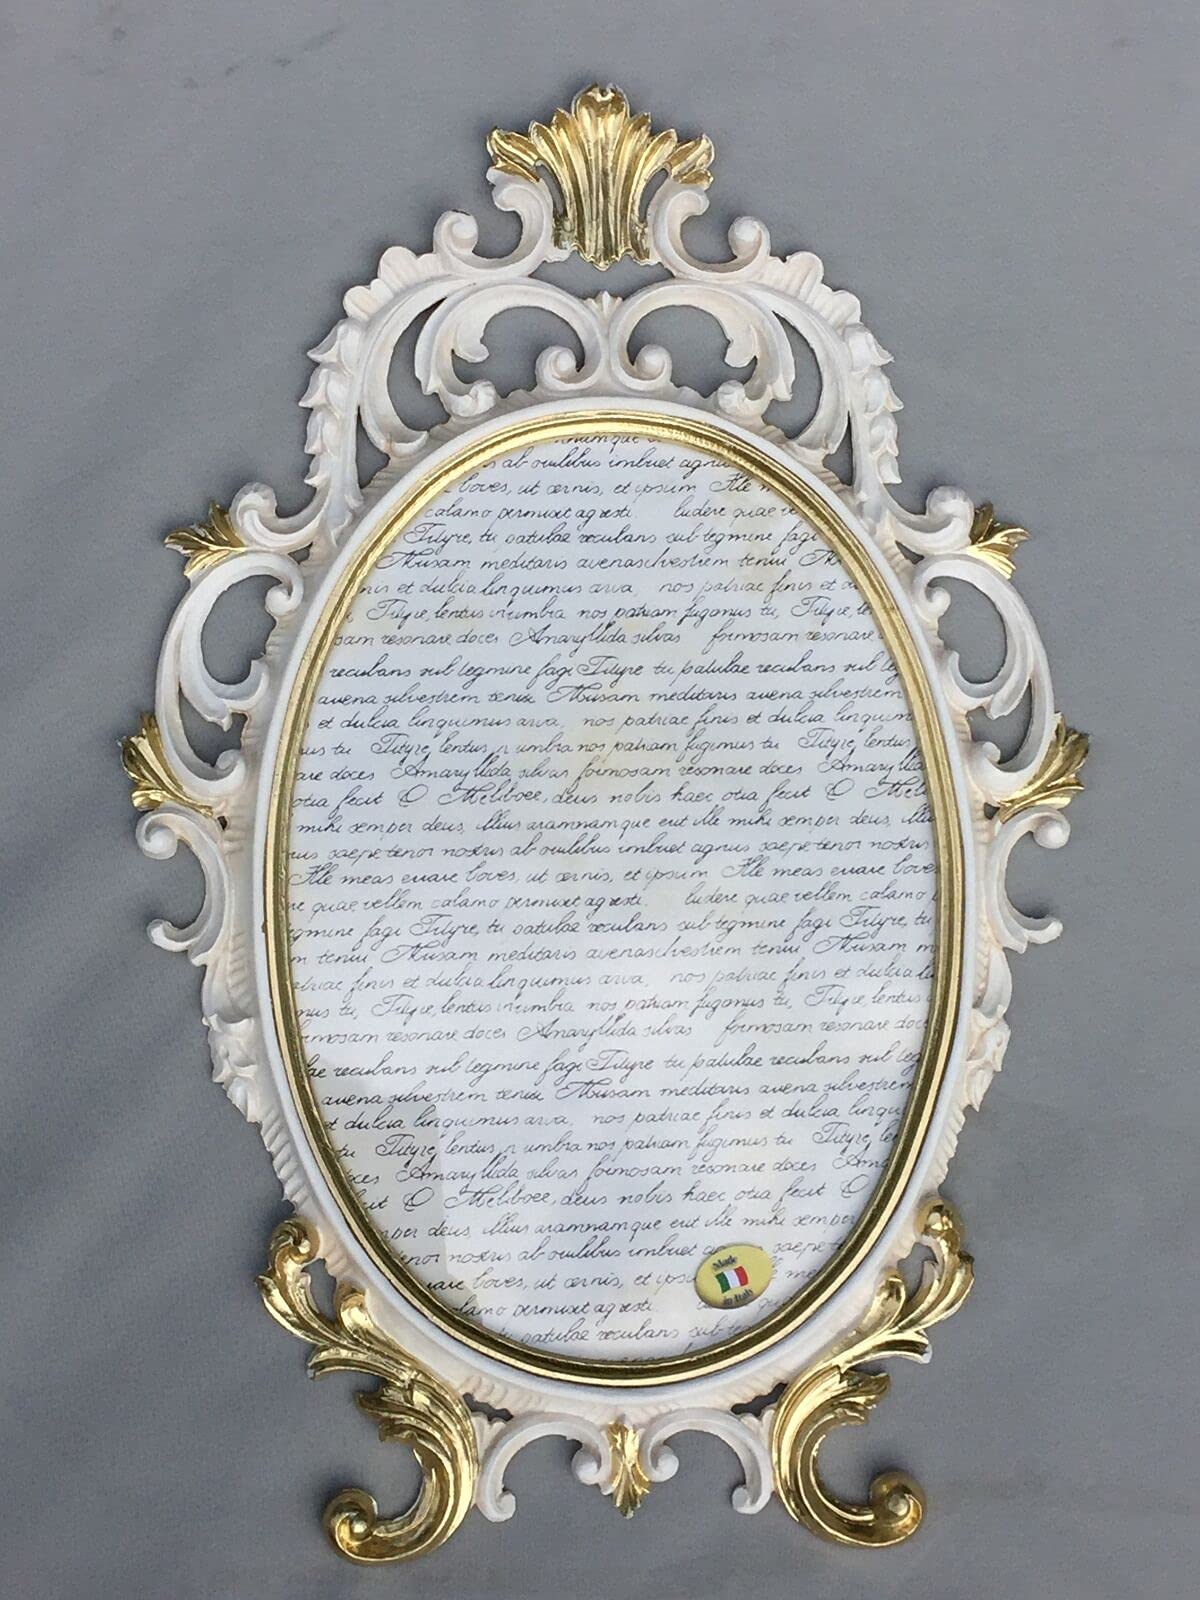 numque
s ab ovilibus imbuet agnus
boves, ut cernis, et ipsum Ille m
calamo permisit agresti. ludere quae ve
Tityre, tu patulae recubans sub tegmine fagi
Musam meditaris avenasilvestrem tenui M
nis et dulcia linquimus arva, nos patriae finis et d
Tityre, lentus in umbra nos patriam fugimus tu, Tityre, le
sam resonare doces Amaryllida silvas formosam resonare
recubans sub tegmine fagi Tityre tu patulae recubans sub te
avena silvestrem tenui Musam meditaris avena silvestrem
et dulcia linquimus arva, nos patriae finis et dulcia linquim
us tu Tityre, lentus n umbra nos patriam fugimus tu Tityre, lentus
are doces Amaryllida silvas formosam resonare doces Amaryllida
otia fecit O Meliboee, deus nobis haec otia fecit O Melib
mihi semper deus, illius aramnamque erit ille mihi semper deus, illiu
rius saepe tenor nostris ab ovilibus imbuet agnus saepe tenor nostris
Ille meas errare boves, ut cernis, et ipsum Ille meas errare boves
re quae vellem calamo permisit agresti. ludere quae vellem calamo
gmine fagi Tityre, tu patulae recubans sub tegmine fagi Tityre, tu
m tenui Musam meditaris avenasilvestrem tenui Musam m
atriae finis et dulcia linquimus arva, nos patriae finis et dulcia li
mus tu, Tityre, lentus in umbra nos patriam fugimus tu, Tityre, lentus
rmosam resonare doces Amaryllida silvas formosam resonare doce
lae recubans sub tegmine fagi Tityre tu patulae recubans sub teg
avena silvestrem tenui Musam meditaris avena silvestrem
et dulcia linquimus arva, nos patriae finis et dulcia linqu
tu Tityre, lentus n umbra nos patriam fugimus tu Tityre, le
oces Amaryllida silvas formosam resonare doces Ama
cit O Meliboee, deus nobis haec otia fecit O
mper deus, illius aramnamque erit ille mihi semper
tenor nostris ab ovilibus imbuet ag saepe te
rrare boves, ut cernis, et ipsu me
alamo permisit agresti. qu
tu patulae recubans sub te
Made
in Italy